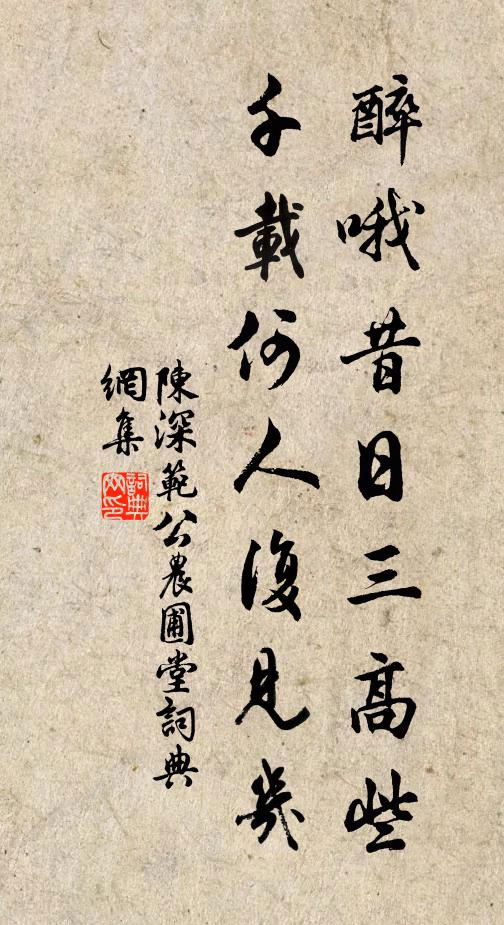 醉哦昔日三高些
千載何人復見幾
陳深範公農圃堂詞典
網集
詞典
网印